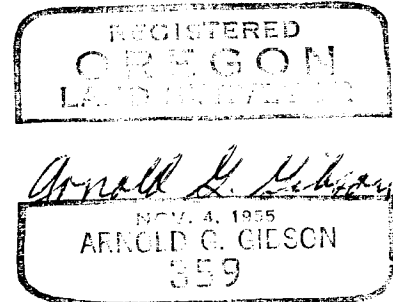 REGISTERED
OREGON
LAND SURVEYOR
Arnold G. Gibson
NOV. 4, 1955
ARNOLD G. GIBSON
359